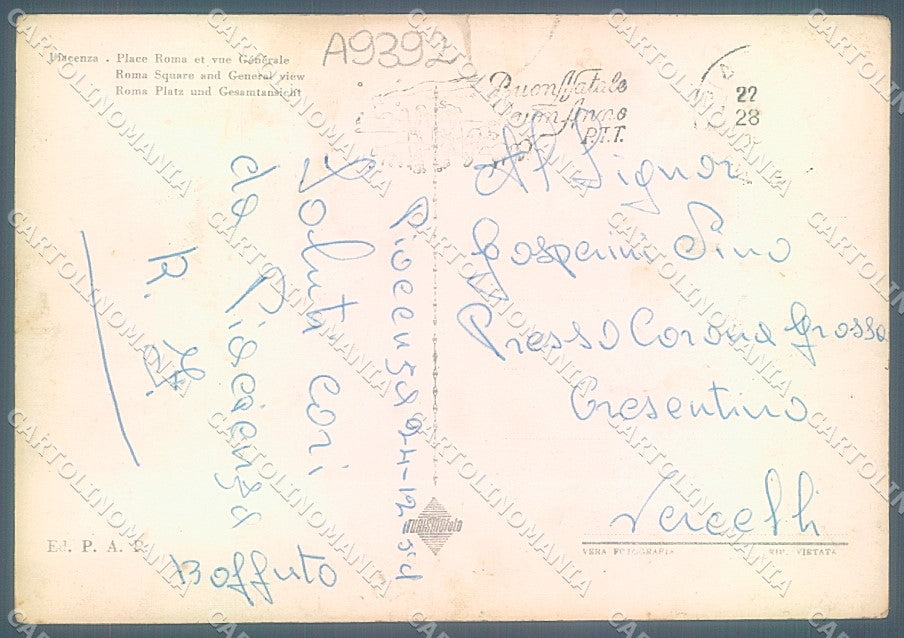 Piacenza - Place Roma et vue Générale
Roma Square and General view
Roma Platz und Gesamtansicht
A9392
Buon Natale
Buon Anno
P.T.T.
22
28
Al Signor
Gasperini Pino
Presso Corona Grossa
Cresentino
Vercelli
Piacenza 24-12-54
Saluti cari
da Piacenza
Boffuto
TURISMOfoto
Ed. P. A. C.
VERA FOTOGRAFIA
RIP. VIETATA
CARTOLINOMANIA